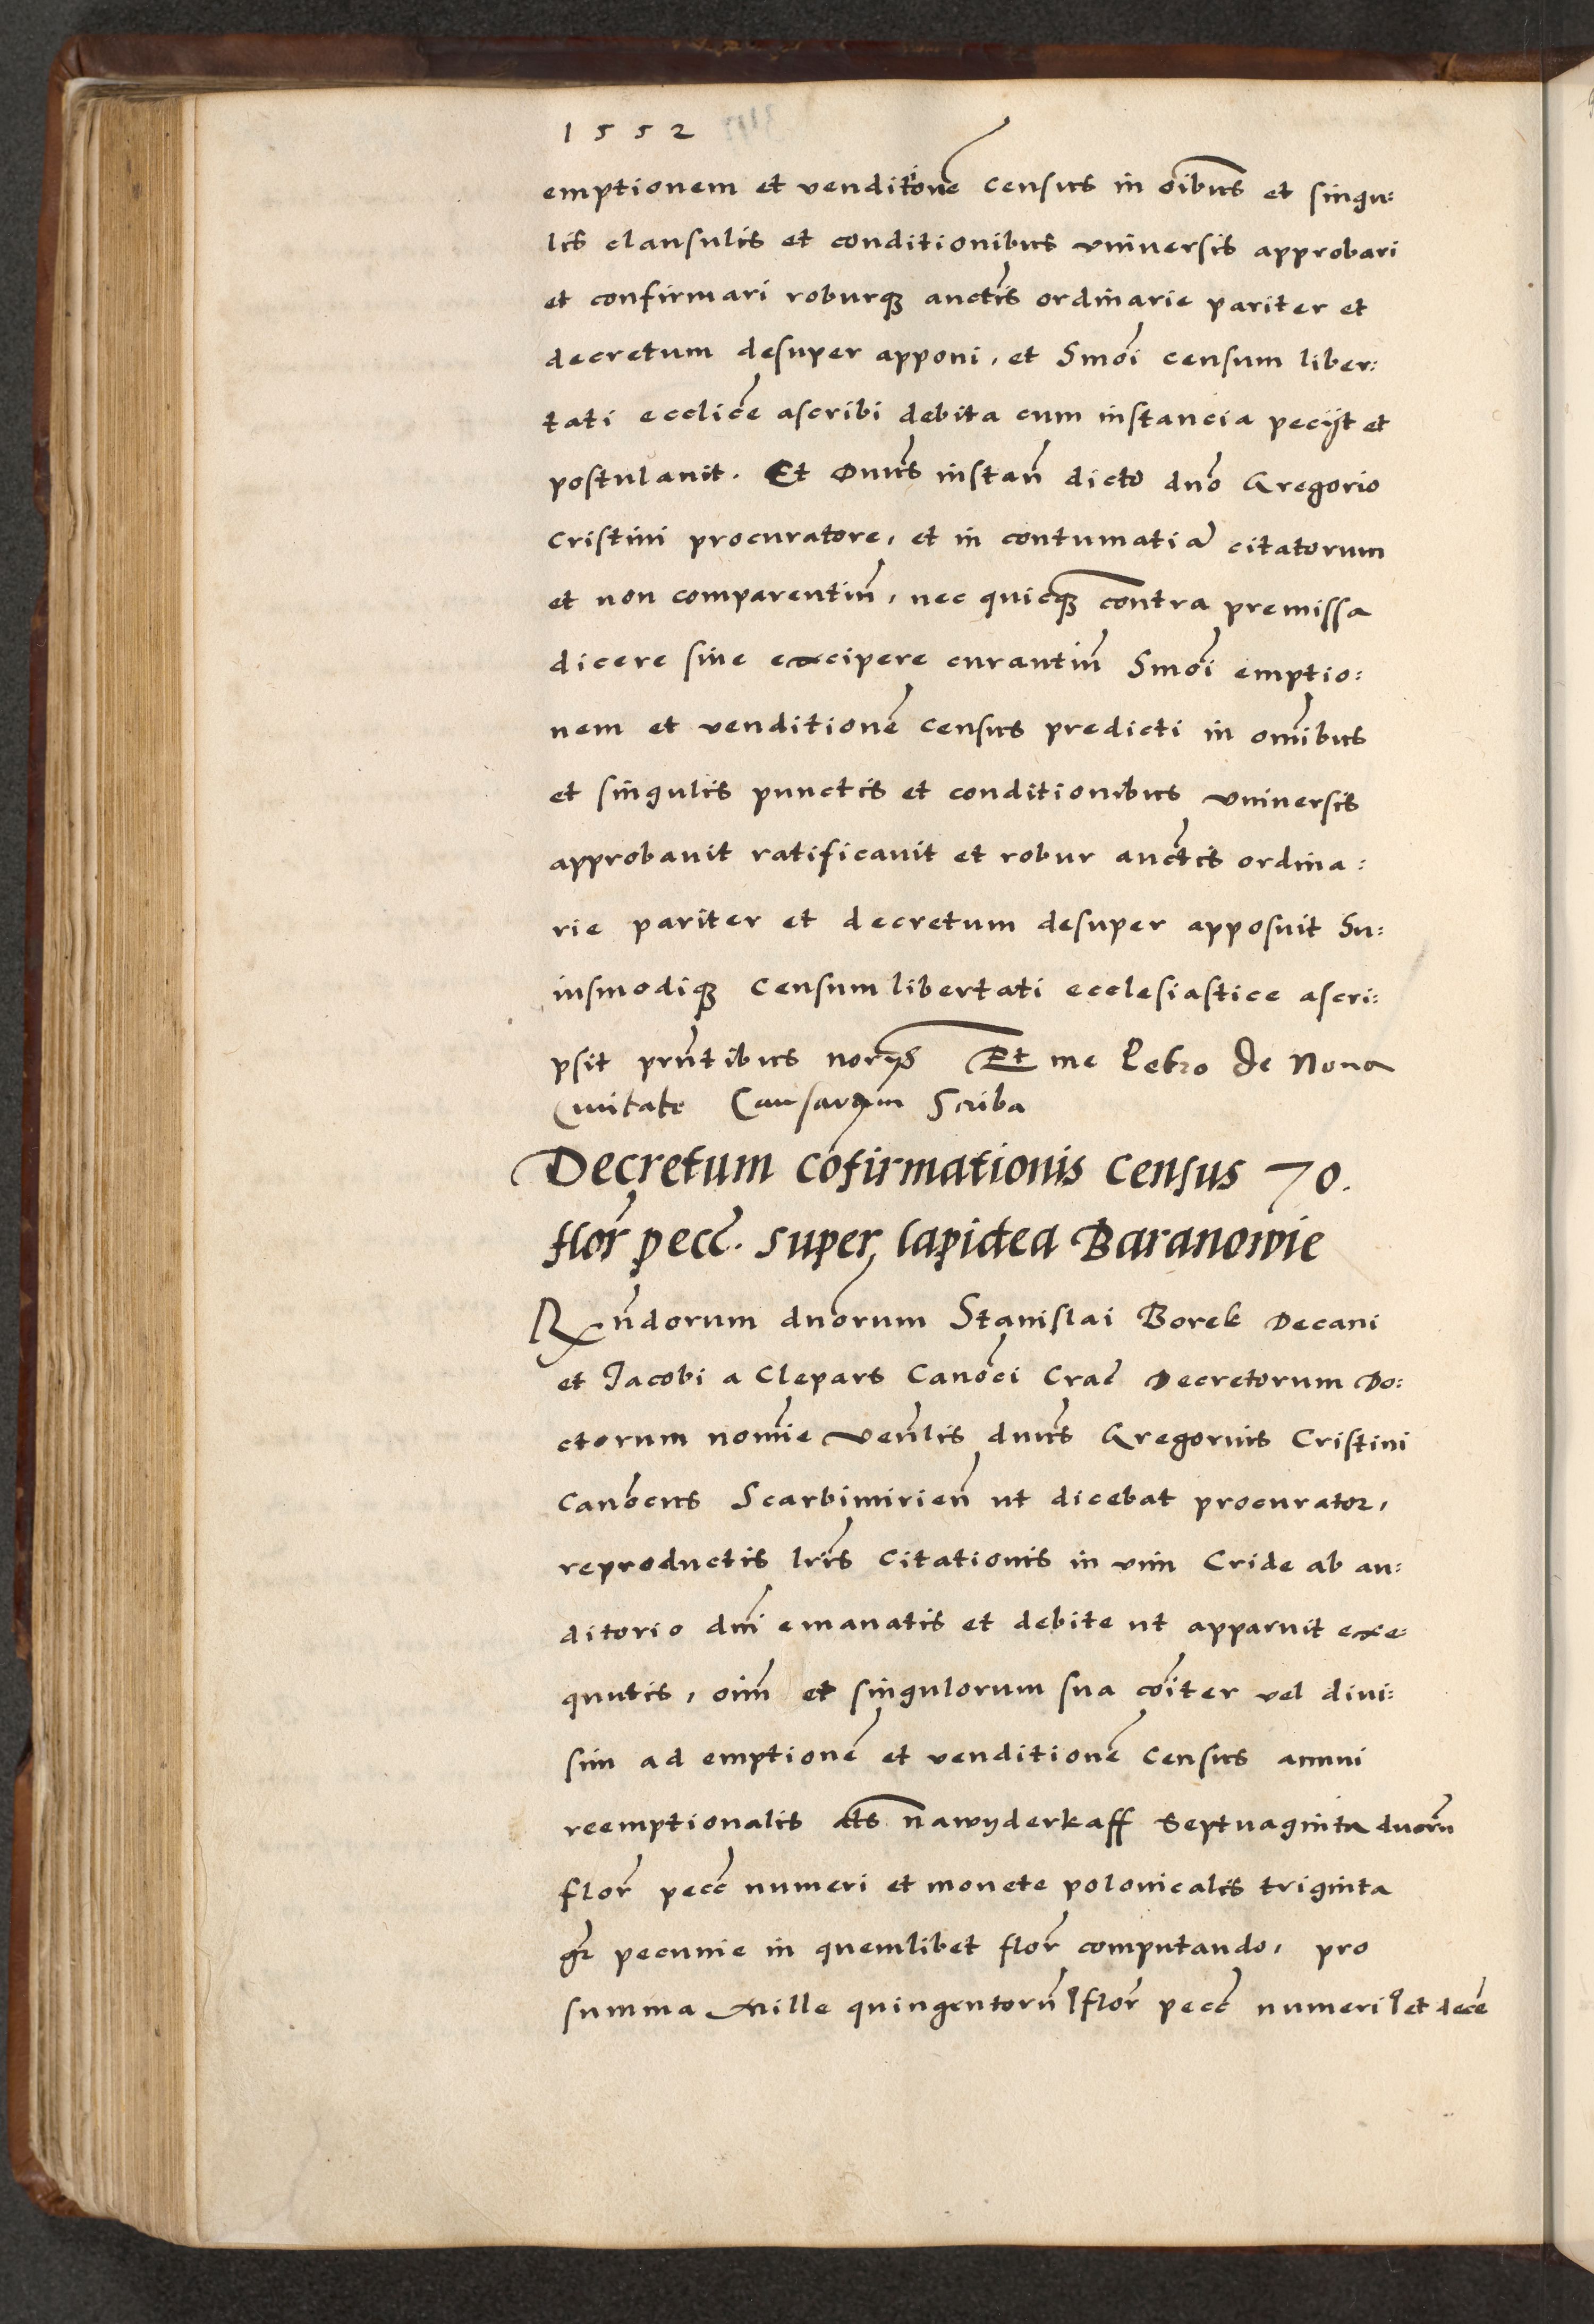 1552
emptionem et venditione census in oibus et singu:
lis clausulis et conditionibus universis approbari
et confirmari roburq auctis ordinarie pariter et
decretum desuper apponi, et Smoi censum liber:
tati ecclice ascribi debita cum instancia peciit et
postulavit. Et Dnus instan dicto dno Gregorio
Cristini procuratore, et in contumatia citatorum
et non comparentiu, nec quicq contra premissa
dicere sive excipere curantiu Smoi emptio:
nem et venditione census predicti in omibus
et singulis punctis et conditionibus universis
approbavit ratificavit et robur auctis ordina:
rie pariter et decretum desuper apposuit Hu:
iusmodiq censum libertati ecclesiastice ascri:
psit pntibus noriis Et me Petro de Nova
Civitate Causarum Scriba
Decretum cofirmationis census 70.
flor pecc. super lapidea Baranowie
Rndorum dnorum Stanislai Borek Decani
et Jacobi a Clepars Canoci Crac Decretorum Do:
ctorum nomie Venlis dnus Gregorius Cristini
Canocus Scarbimirien ut dicebat procurator,
reproductis lris citationis in vim Cride ab au:
ditorio dni emanatis et debite ut apparuit exe:
qutis, oim et singulorum sua coiter vel divi:
sim ad emptione et venditione census annui
reemptionalis als nawyderkaff septuaginta duoru
flor pecc numeri et monete polonicalis triginta
gr pecunie in quemlibet flor computando, pro
summa Mille quingentoru flor pecc numeri et dece